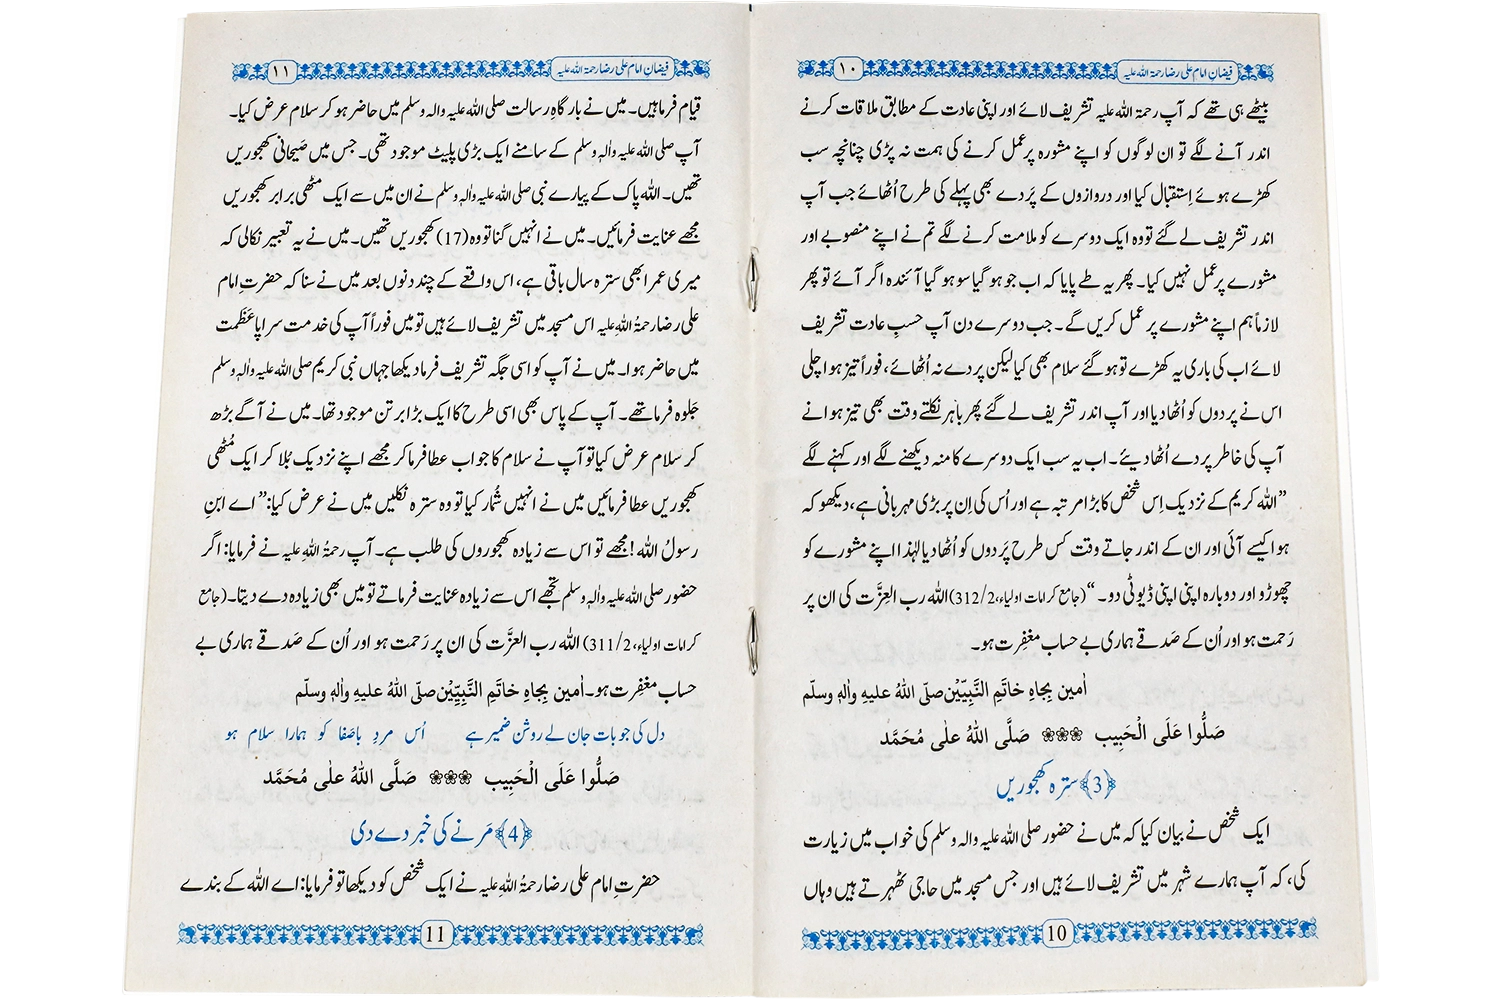 فیضانِ امام علی رضا رحمۃ اللہ علیہ
۱۰
بیٹھے ہی تھے کہ آپ رحمۃ اللہ علیہ تشریف لائے اور اپنی عادت کے مطابق ملاقات کرنے
اندر آنے لگے تو ان لوگوں کو اپنے مشورہ پر عمل کرنے کی ہمت نہ پڑی چنانچہ سب
کھڑے ہوئے اِستقبال کیا اور دروازوں کے پَردے بھی پہلے کی طرح اُٹھائے جب آپ
اندر تشریف لے گئے تو وہ ایک دوسرے کو ملامت کرنے لگے تم نے اپنے منصوبے اور
مشورے پر عمل نہیں کیا۔ پھر یہ طے پایا کہ اب جو ہو گیا سو ہو گیا آئندہ اگر آئے تو پھر
لازماً ہم اپنے مشورے پر عمل کریں گے۔ جب دوسرے دن آپ حسبِ عادت تشریف
لائے اب کی باری یہ کھڑے تو ہو گئے سلام بھی کیا لیکن پردے نہ اُٹھائے، فوراً تیز ہوا چلی
اس نے پردوں کو اُٹھا دیا اور آپ اندر تشریف لے گئے پھر باہر نکلتے وقت بھی تیز ہوا نے
آپ کی خاطر پردے اُٹھا دیئے۔ اب یہ سب ایک دوسرے کا منہ دیکھنے لگے اور کہنے لگے
”اللہ کریم کے نزدیک اِس شخص کا بڑا مرتبہ ہے اور اُس کی اِن پر بڑی مہربانی ہے، دیکھو کہ
ہوا کیسے آئی اور ان کے اندر جاتے وقت کس طرح پَردوں کو اُٹھا دیا لہٰذا اپنے مشورے کو
چھوڑو اور دوبارہ اپنی اپنی ڈیوٹی دو۔“ (جامع کرامات اولیاء، 312/2) اللہ رب العِزَّت کی ان پر
رَحمت ہو اور اُن کے صَدقے ہماری بے حساب مغفِرت ہو۔
اٰمین بِجاہِ خاتَمِ النَّبِیِّیْن صلّی اللہُ علیہِ واٰلہٖ وسلّم
صَلُّوا عَلَی الْحَبِیب ❀❀❀ صَلَّی اللہُ علٰی مُحَمَّد
﴿3﴾ سترہ کھجوریں
ایک شخص نے بیان کیا کہ میں نے حضور صلی اللہ علیہ والہ وسلم کی خواب میں زیارت
کی، کہ آپ ہمارے شہر میں تشریف لائے ہیں اور جس مسجد میں حاجی ٹھہرتے ہیں وہاں
10
فیضانِ امام علی رضا رحمۃ اللہ علیہ
۱۱
قیام فرما ہیں۔ میں نے بارگاہِ رسالت صلی اللہ علیہ والہ وسلم میں حاضر ہو کر سلام عرض کیا۔
آپ صلی اللہ علیہ واٰلہٖ وسلم کے سامنے ایک بڑی پلیٹ موجود تھی۔ جس میں صَیحانی کھجوریں
تھیں۔ اللہ پاک کے پیارے نبی صلی اللہ علیہ واٰلہٖ وسلم نے ان میں سے ایک مٹھی برابر کھجوریں
مجھے عنایت فرمائیں۔ میں نے انہیں گنا تو وہ (17) کھجوریں تھیں۔ میں نے یہ تعبیر نکالی کہ
میری عمر ابھی سترہ سال باقی ہے، اس واقعے کے چند دنوں بعد میں نے سنا کہ حضرتِ امام
علی رضا رحمۃُ اللہِ علیہ اس مسجد میں تشریف لائے ہیں تو میں فوراً آپ کی خدمت سراپا عَظَمت
میں حاضر ہوا۔ میں نے آپ کو اسی جگہ تشریف فرما دیکھا جہاں نبی کریم صلی اللہ علیہ واٰلہٖ وسلم
جَلوہ فرما تھے۔ آپ کے پاس بھی اسی طرح کا ایک بڑا برتن موجود تھا۔ میں نے آگے بڑھ
کر سلام عرض کیا تو آپ نے سلام کا جواب عطا فرما کر مجھے اپنے نزدیک بُلا کر ایک مُٹھی
کھجوریں عطا فرمائیں میں نے انہیں شُمار کیا تو وہ سترہ نکلیں میں نے عرض کیا: ”اے ابنِ
رسولُ اللہ! مجھے تو اس سے زیادہ کھجوروں کی طلب ہے۔ آپ رحمۃُ اللہِ علیہ نے فرمایا: اگر
حضور صلی اللہ علیہ واٰلہٖ وسلم تجھے اس سے زیادہ عنایت فرماتے تو میں بھی زیادہ دے دیتا۔ (جامع
کرامات اولیاء، 311/2) اللہ رب العزَّت کی ان پر رَحمت ہو اور اُن کے صَدقے ہماری بے
حساب مغفِرت ہو۔ اٰمین بِجاہِ خاتَمِ النَّبِیِّیْن صلّی اللہُ علیہِ واٰلہٖ وسلّم
دل کی جو بات جان لے روشن ضمیر ہے اُس مردِ باصَفا کو ہمارا سلام ہو
صَلُّوا عَلَی الْحَبِیب ❀❀❀ صَلَّی اللہُ علٰی مُحَمَّد
﴿4﴾ مَرنے کی خبر دے دی
حضرتِ امام علی رضا رحمۃُ اللہِ علیہ نے ایک شخص کو دیکھا تو فرمایا: اے اللہ کے بندے
11